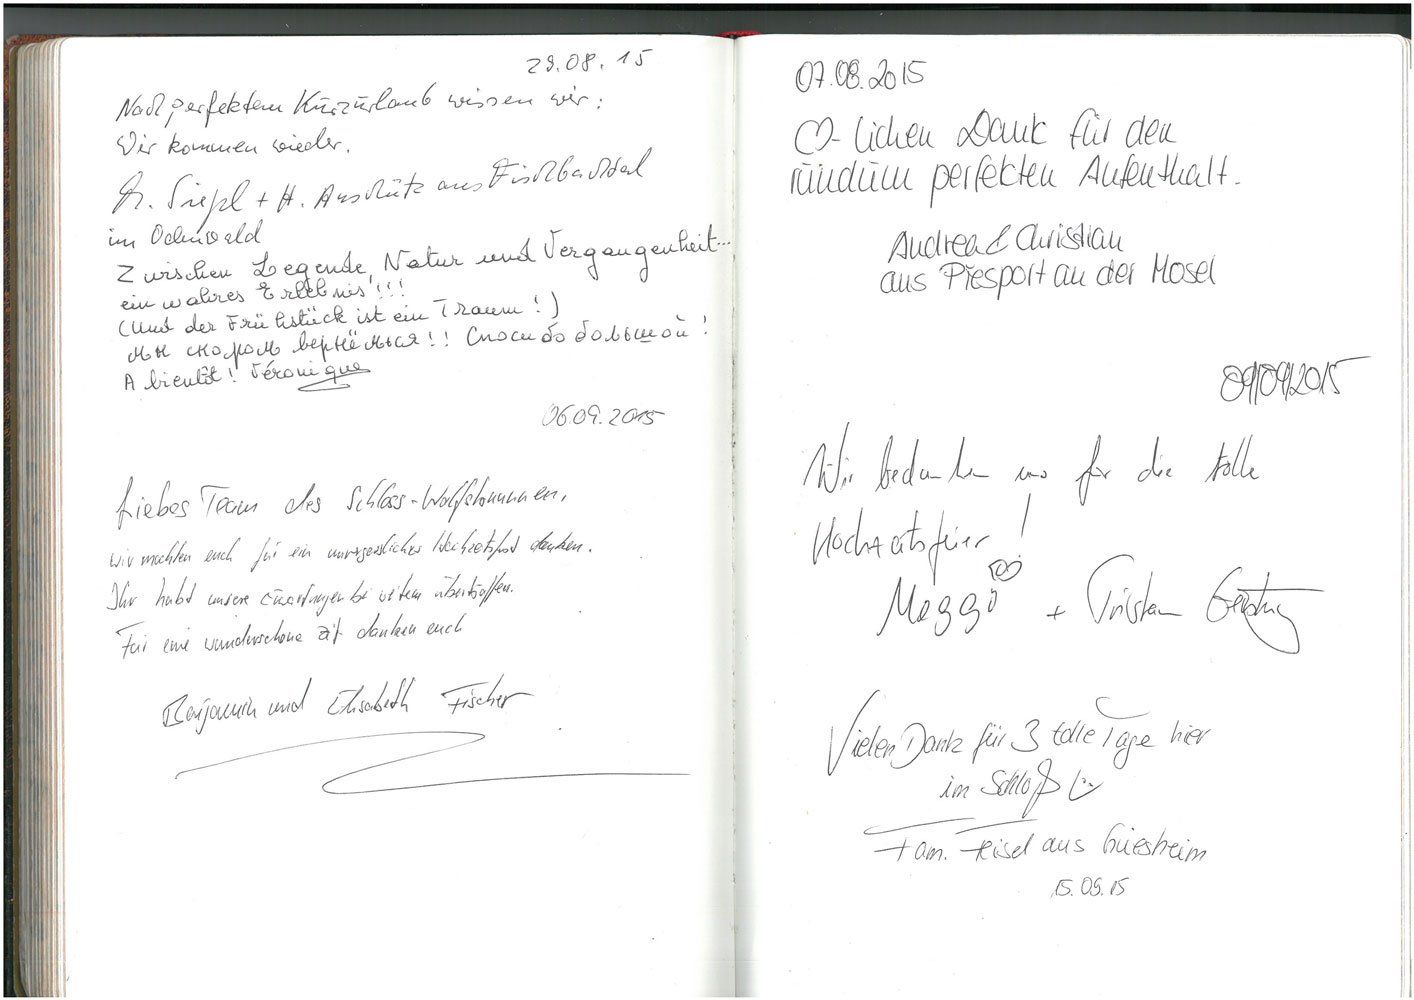 29.08.15
Nach perfektem Kurzurlaub wissen wir:
Wir kommen wieder.
+ H. Anschütz aus Fischbachtal
im Odenwald
Zwischen Legende, Natur und Vergangenheit...
ein wahres Erlebnis!!!
(Und der Frühstück ist ein Traum!)
мы скором вернёмься!! Спосибо большой!
A bientôt! Véronique
06.09.2015
Liebes Team des Schloss-Wolfsbrunnen,
wir möchten euch für ein unvergessliches Hochzeitsfest danken.
Ihr habt unsere Erwartungen bei weitem übertroffen.
Für eine wunderschöne Zeit danken euch
Benjamin und Elisabeth Fischer
07.08.2015
♡-lichen Dank für den
rundum perfekten Aufenthalt.
Andrea & Christian
aus Piesport an der Mosel
09/09/2015
Wir bedanken uns für die tolle
Hochzeitsfeier!
Meggi + Tristan
Vielen Dank für 3 tolle Tage hier
im Schloß
Fam. Feisel aus Griesheim
15.09.15